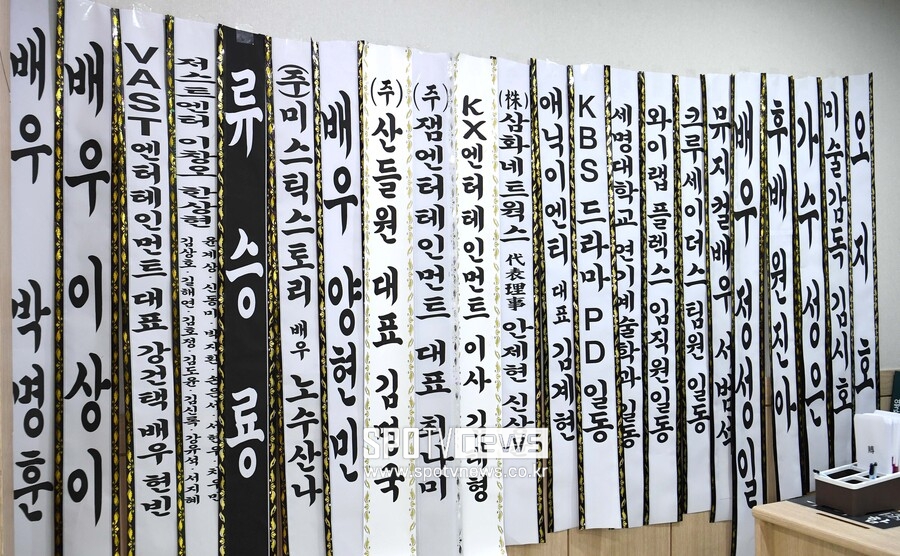 배우 박명훈
배우 이상이
VAST엔터테인먼트 대표 강건택 배우 현빈
저스트엔터 이창오 한상현
윤계상·신동미·박지환
김상호·길해연·김호정·김도윤·김신록·강유석·서지혜
류승룡
(주)미스틱스토리 배우 노수산나
배우 양현민
(주)산들원 대표 김 국
(주)잼엔터테인먼트 대표 최 미
KX엔터테인먼트 이사 김 형
(株)삼화네트웍스 代表理事 안제현 신상
애닉이엔티 대표 김계현
KBS 드라마 PD 일동
세명대학교 연기예술학과 일동
와이랩 플렉스 임직원일동
크루세이더스 팀원 일동
뮤지컬배우 서범석
배우 정성일
후배 원진아
가수 성은
미술감독 김시호
오지호
SPOTV news
www.spotvnews.co.kr